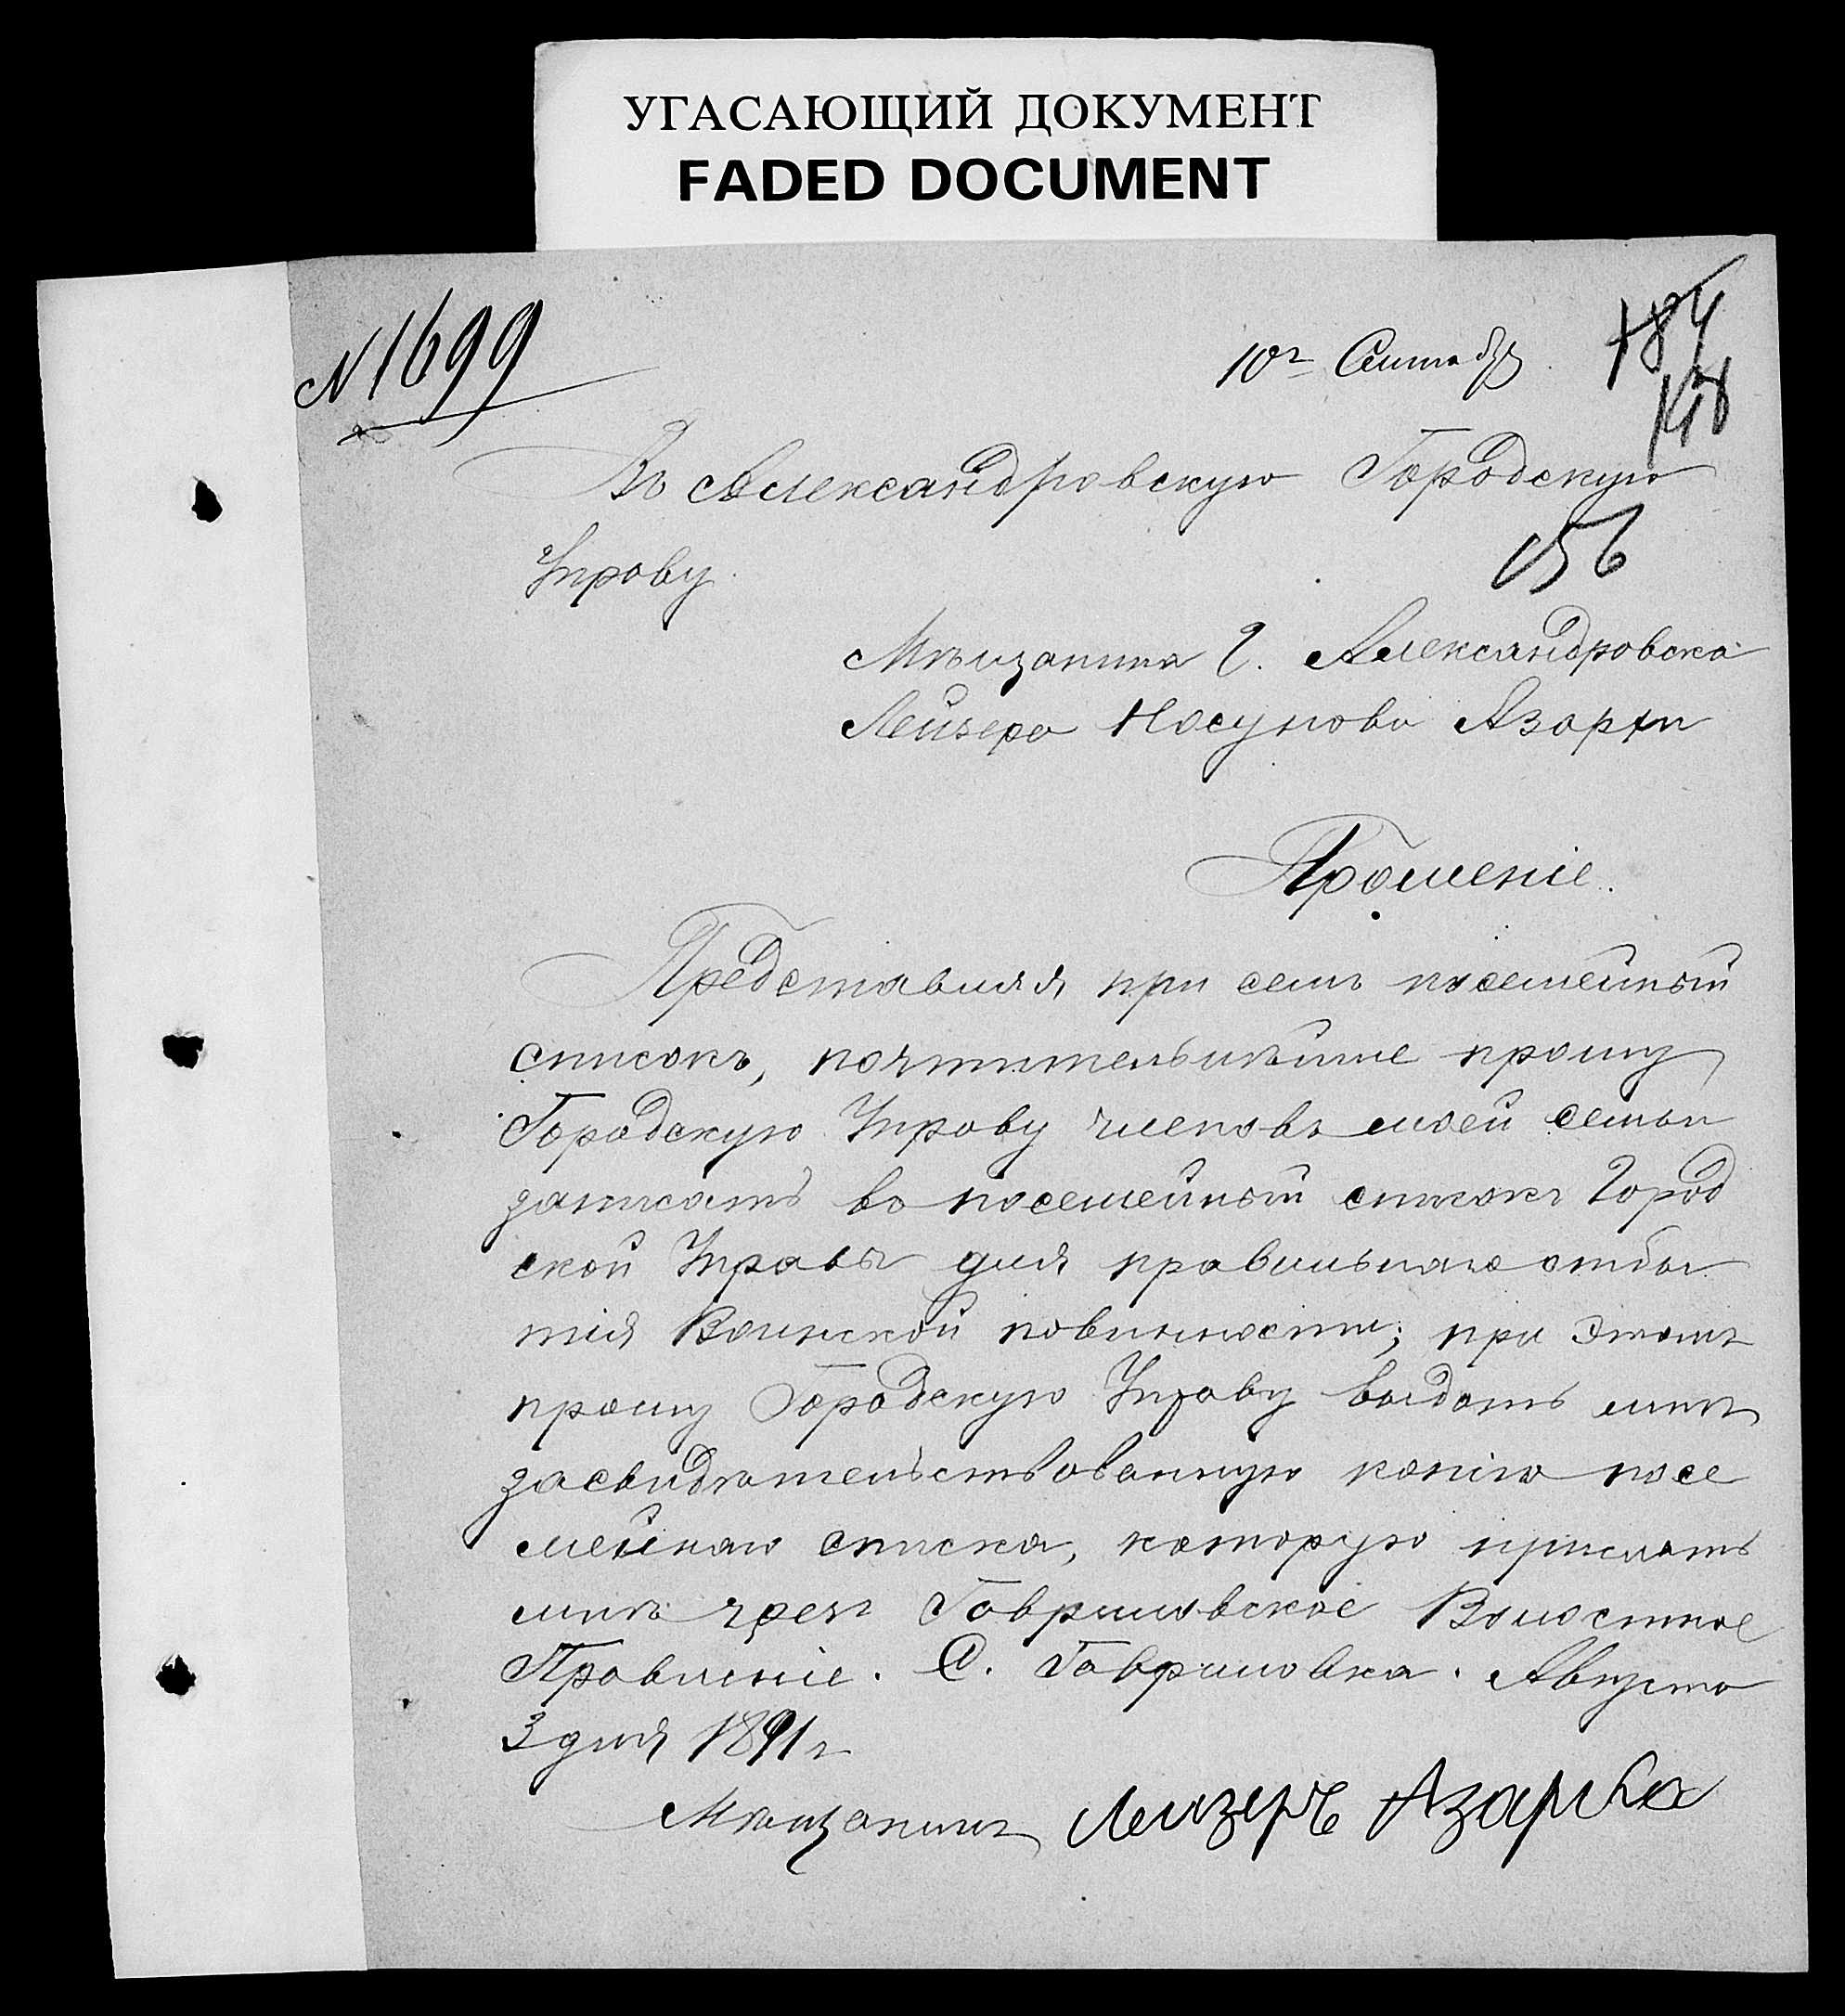 УГАСАЮЩИЙ ДОКУМЕНТ
FADED DOCUMENT
№ 1699
10г Сентября
184
156
Въ Александровскую Городскую
Управу
Мѣщанина г. Александровска
Лейзера Носунова Азархи
Прошеніе.
Представляя при семъ посемейный
списокъ, почтительнѣйше прошу
Городскую Управу членовъ моей семьи
записать въ посемейный списокъ Город
ской Управы для правильнаго отбы
тія Воинской повинности; при этомъ
прошу Городскую Управу выдать мнѣ
засвидѣтельствованную копію посе
мейнаго списка, которую прислать
мнѣ чрезъ Гавриловское Волостное
Правленіе. С. Гавриловка. Августа
3 дня 1891 г
Мѣщанинъ Лейзеръ